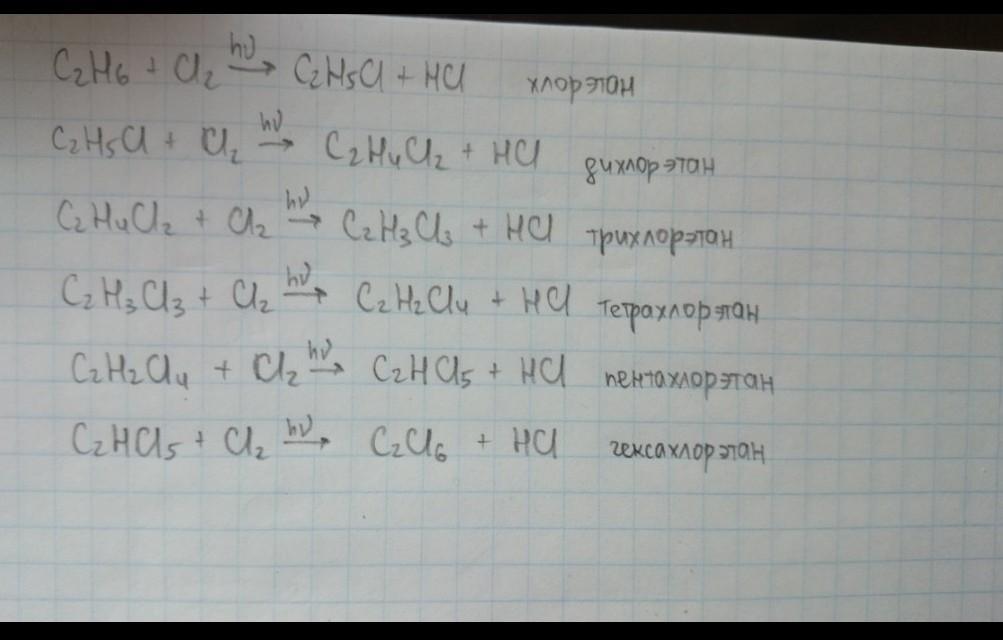 C₂H₆ + Cl₂ hν→ C₂H₅Cl + HCl хлорэтан
C₂H₅Cl + Cl₂ hν→ C₂H₄Cl₂ + HCl дихлорэтан
C₂H₄Cl₂ + Cl₂ hν→ C₂H₃Cl₃ + HCl трихлорэтан
C₂H₃Cl₃ + Cl₂ hν→ C₂H₂Cl₄ + HCl тетрахлорэтан
C₂H₂Cl₄ + Cl₂ hν→ C₂HCl₅ + HCl пентахлорэтан
C₂HCl₅ + Cl₂ hν→ C₂Cl₆ + HCl гексахлорэтан